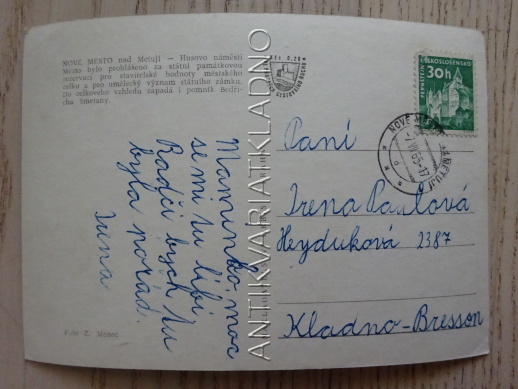 NOVÉ MĚSTO nad Metují — Husovo náměstí
Město bylo prohlášeno za státní památkovou
rezervaci pro stavitelské hodnoty městského
celku a pro umělecký význam státního zámku.
Do celkového vzhledu zapadá i pomník Bedři-
cha Smetany.
Maminko, moc
se mi tu líbí
Radši bych tu
byla pořád.
Irena
Foto Z. Menec
ANTIKVARIATKLADNO
ČESKOSLOVENSKO
30h
PERNŠTEJN
NOVÉ MĚSTO NAD METUJÍ
Paní
Irena Pavlová
Heyduková 2387
Kladno-Bresson